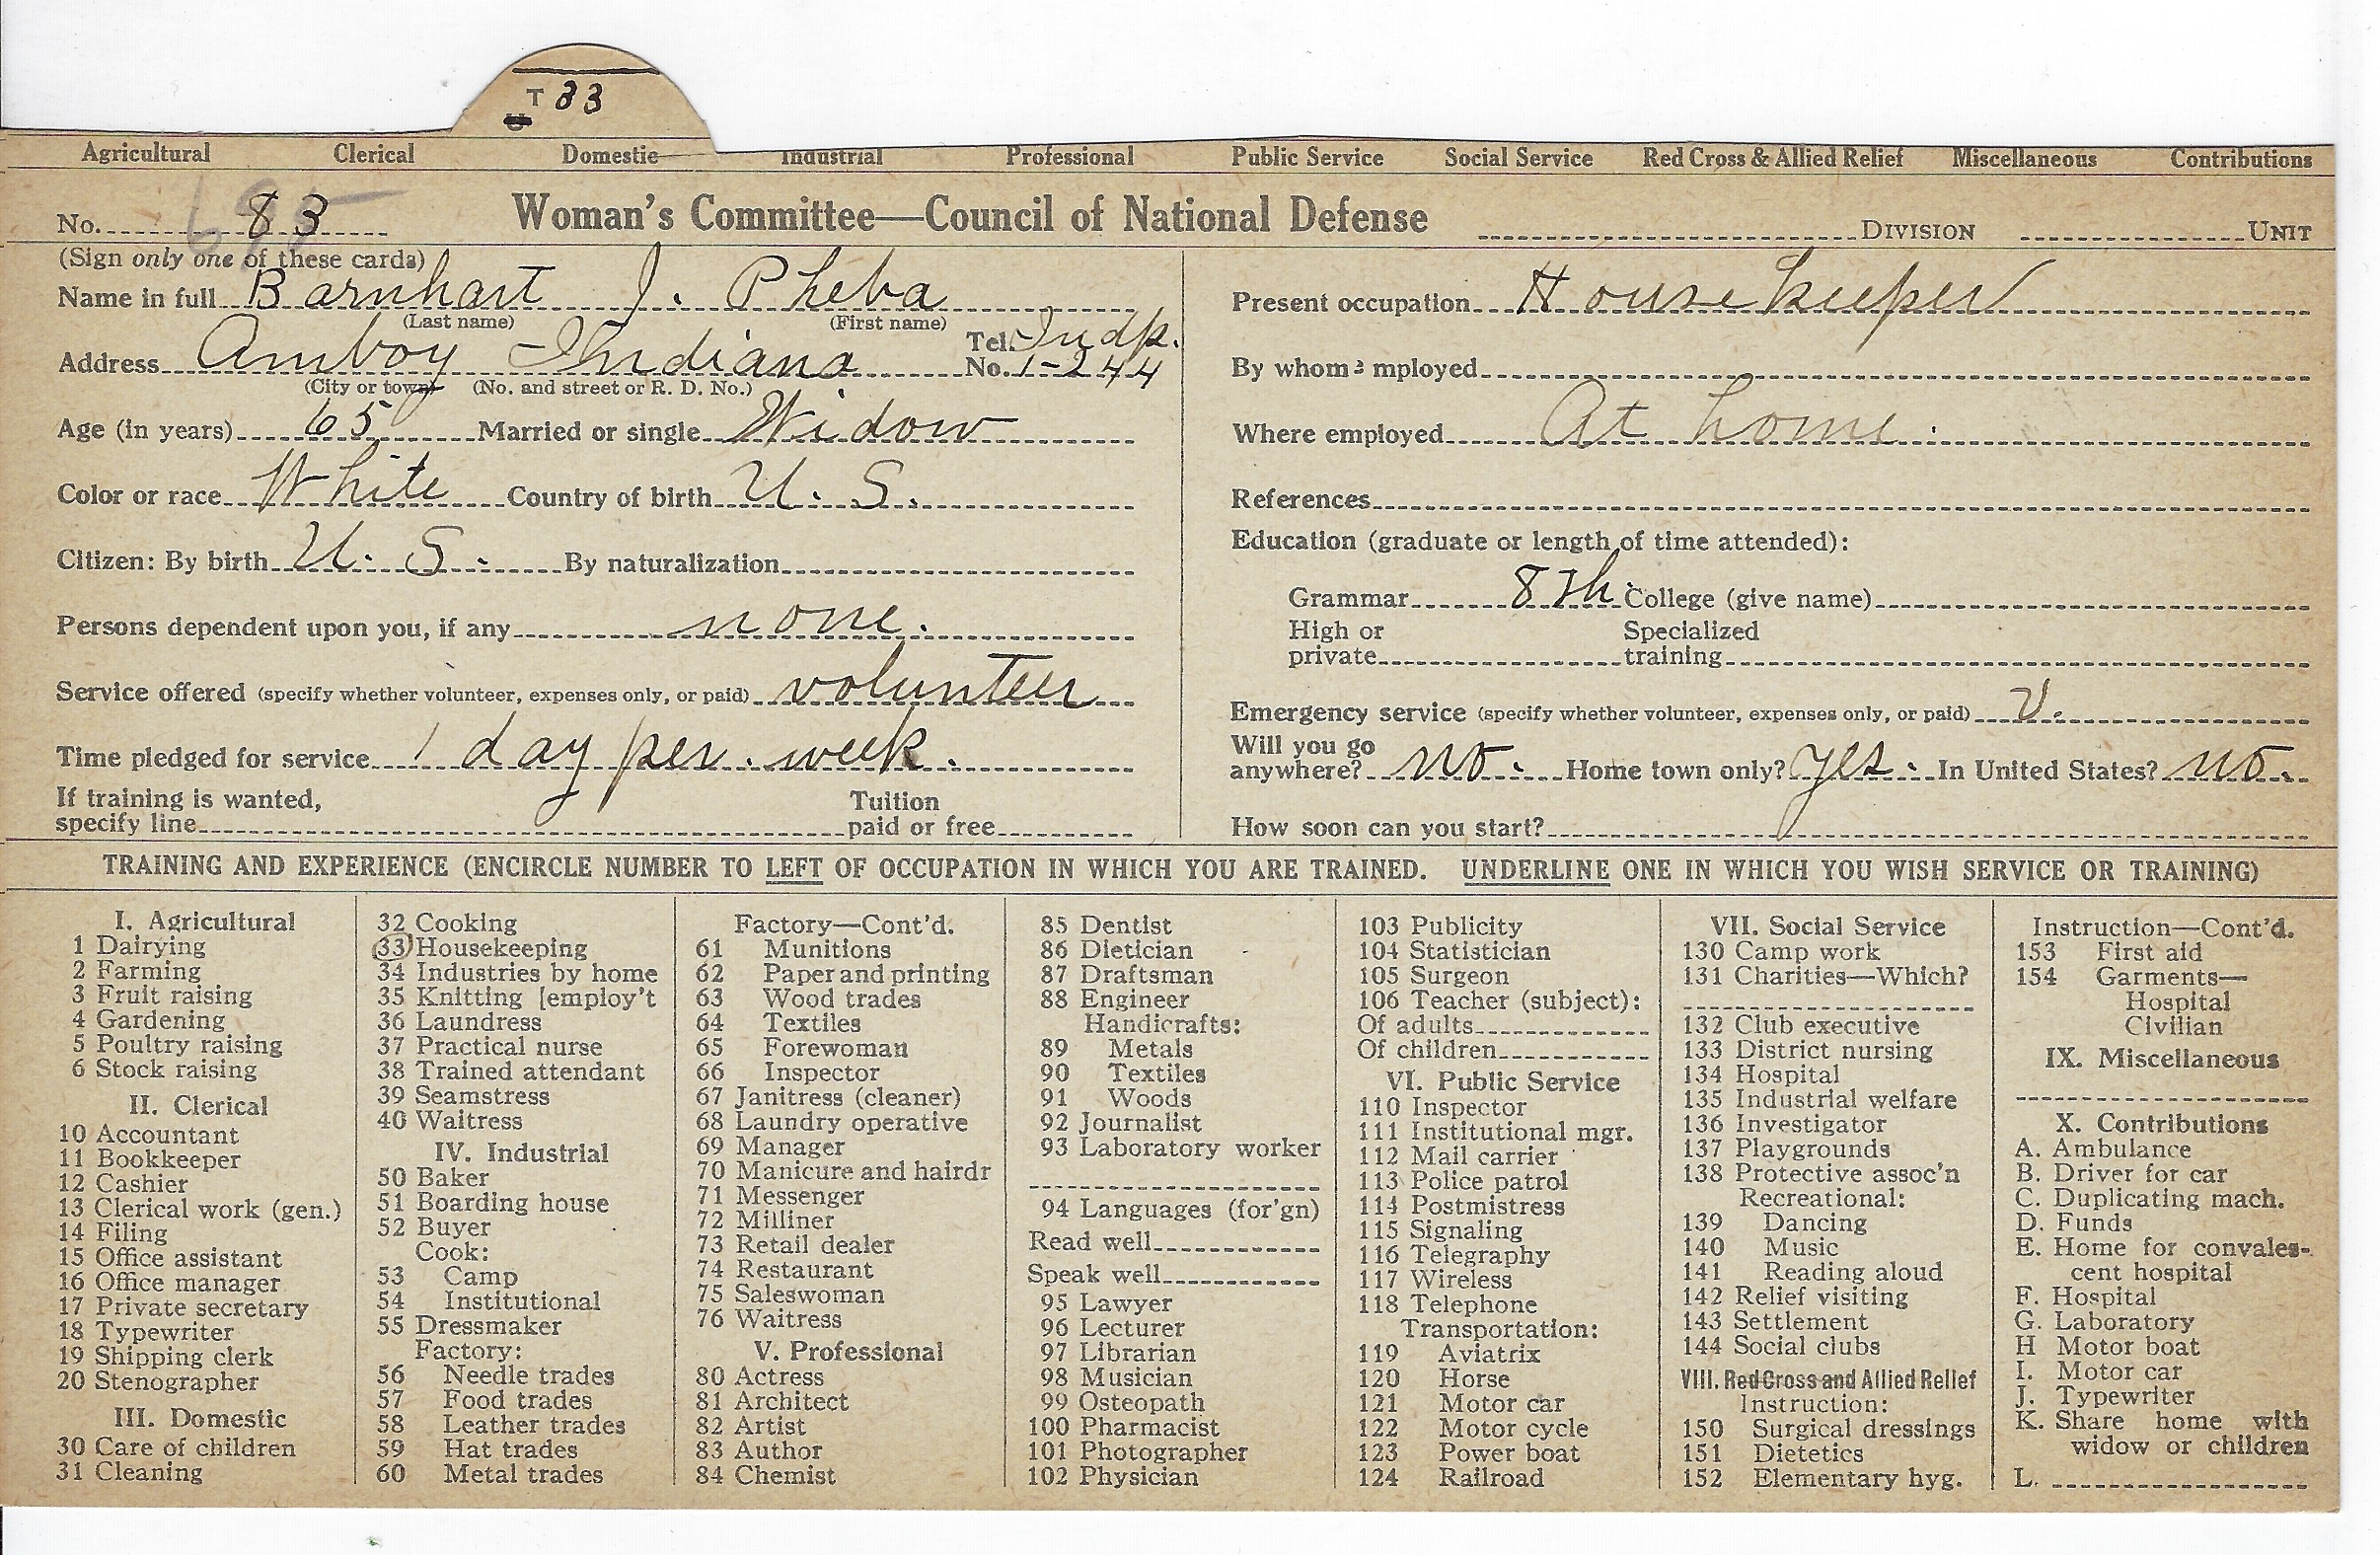 T 33
U
Agricultural Clerical Domestic Industrial Professional Public Service Social Service Red Cross & Allied Relief Miscellaneous Contributions
No. 83 Woman's Committee—Council of National Defense DIVISION UNIT
(Sign only one of these cards)
Name in full Barnhart J. Pheba
(Last name) (First name)
Address Amboy Indiana Tel. No. Indp. 1-244
(City or town) (No. and street or R. D. No.)
Age (in years) 65 Married or single Widow
Color or race White Country of birth U. S.
Citizen: By birth U. S. By naturalization
Persons dependent upon you, if any none.
Service offered (specify whether volunteer, expenses only, or paid) volunteer
Time pledged for service 1 day per. week.
If training is wanted,
specify line Tuition paid or free
Present occupation Housekeeper
By whom employed
Where employed At home.
References
Education (graduate or length of time attended):
Grammar 8th. College (give name)
High or private Specialized training
Emergency service (specify whether volunteer, expenses only, or paid) v.
Will you go anywhere? no. Home town only? yes. In United States? no.
How soon can you start?
TRAINING AND EXPERIENCE (ENCIRCLE NUMBER TO LEFT OF OCCUPATION IN WHICH YOU ARE TRAINED. UNDERLINE ONE IN WHICH YOU WISH SERVICE OR TRAINING)
I. Agricultural
1 Dairying
2 Farming
3 Fruit raising
4 Gardening
5 Poultry raising
6 Stock raising
II. Clerical
10 Accountant
11 Bookkeeper
12 Cashier
13 Clerical work (gen.)
14 Filing
15 Office assistant
16 Office manager
17 Private secretary
18 Typewriter
19 Shipping clerk
20 Stenographer
III. Domestic
30 Care of children
31 Cleaning
32 Cooking
33 Housekeeping
34 Industries by home
35 Knitting [employ't
36 Laundress
37 Practical nurse
38 Trained attendant
39 Seamstress
40 Waitress
IV. Industrial
50 Baker
51 Boarding house
52 Buyer
Cook:
53 Camp
54 Institutional
55 Dressmaker
Factory:
56 Needle trades
57 Food trades
58 Leather trades
59 Hat trades
60 Metal trades
Factory—Cont'd.
61 Munitions
62 Paper and printing
63 Wood trades
64 Textiles
65 Forewoman
66 Inspector
67 Janitress (cleaner)
68 Laundry operative
69 Manager
70 Manicure and hairdr
71 Messenger
72 Milliner
73 Retail dealer
74 Restaurant
75 Saleswoman
76 Waitress
V. Professional
80 Actress
81 Architect
82 Artist
83 Author
84 Chemist
85 Dentist
86 Dietician
87 Draftsman
88 Engineer
Handicrafts:
89 Metals
90 Textiles
91 Woods
92 Journalist
93 Laboratory worker
94 Languages (for'gn)
Read well
Speak well
95 Lawyer
96 Lecturer
97 Librarian
98 Musician
99 Osteopath
100 Pharmacist
101 Photographer
102 Physician
103 Publicity
104 Statistician
105 Surgeon
106 Teacher (subject):
Of adults
Of children
VI. Public Service
110 Inspector
111 Institutional mgr.
112 Mail carrier
113 Police patrol
114 Postmistress
115 Signaling
116 Telegraphy
117 Wireless
118 Telephone
Transportation:
119 Aviatrix
120 Horse
121 Motor car
122 Motor cycle
123 Power boat
124 Railroad
VII. Social Service
130 Camp work
131 Charities—Which?
132 Club executive
133 District nursing
134 Hospital
135 Industrial welfare
136 Investigator
137 Playgrounds
138 Protective assoc'n
Recreational:
139 Dancing
140 Music
141 Reading aloud
142 Relief visiting
143 Settlement
144 Social clubs
VIII. Red Cross and Allied Relief
Instruction:
150 Surgical dressings
151 Dietetics
152 Elementary hyg.
Instruction—Cont'd.
153 First aid
154 Garments—
Hospital
Civilian
IX. Miscellaneous
X. Contributions
A. Ambulance
B. Driver for car
C. Duplicating mach.
D. Funds
E. Home for convales-
cent hospital
F. Hospital
G. Laboratory
H Motor boat
I. Motor car
J. Typewriter
K. Share home with
widow or children
L.